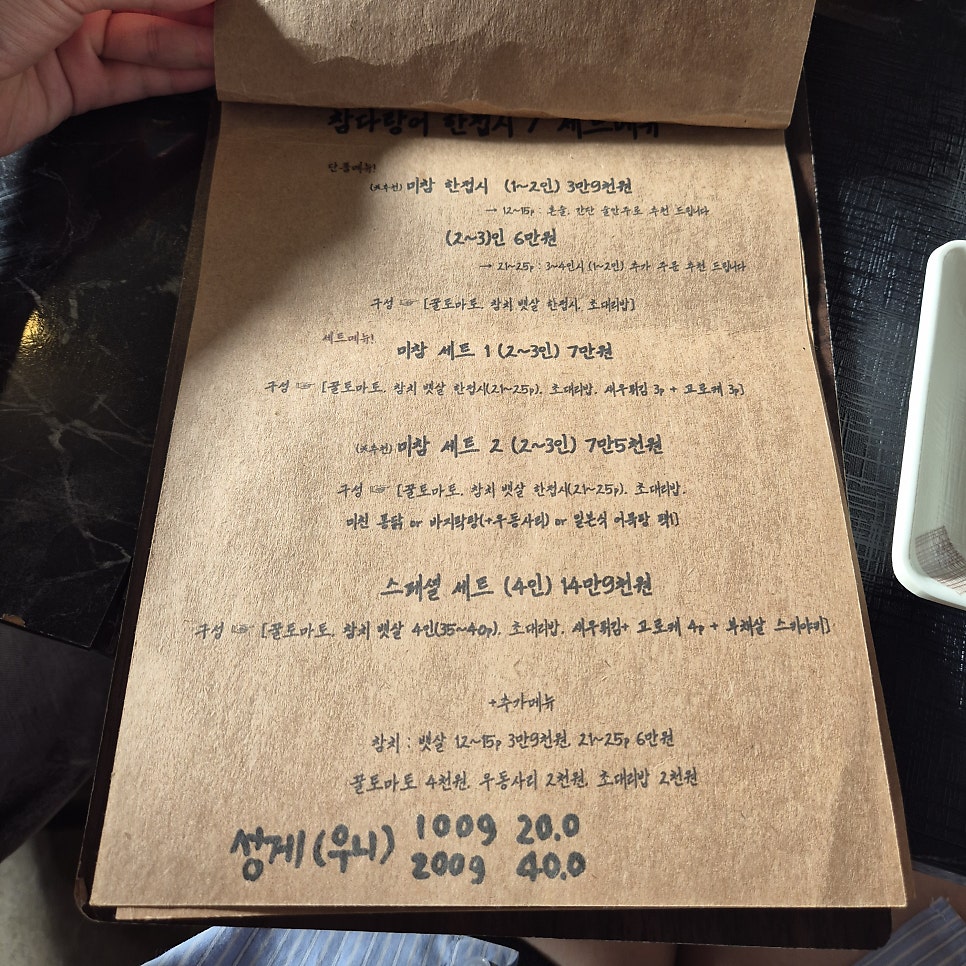 참다랑어 한접시 / 세트메뉴
단품메뉴!
(추천) 미참 한접시 (1~2인) 3만9천원
→ 12~15p : 혼술, 간단 술안주로 추천 드립니다
(2~3)인 6만원
→ 21~25p : 3~4인시 (1~2인) 추가 주문 추천 드립니다
구성 ☞ [꿀토마토, 참치 뱃살 한접시, 초대리밥]
세트메뉴!
미참 세트 1 (2~3인) 7만원
구성 ☞ [꿀토마토, 참치 뱃살 한접시(21~25p), 초대리밥, 새우튀김 3p + 고로케 3p]
(추천) 미참 세트 2 (2~3인) 7만5천원
구성 ☞ [꿀토마토, 참치 뱃살 한접시(21~25p), 초대리밥,
미친 통닭 or 바지락탕(+우동사리) or 일본식 어묵탕 택1]
스페셜 세트 (4인) 14만9천원
구성 ☞ [꿀토마토, 참치 뱃살 4인(35~40p), 초대리밥, 새우튀김+ 고로케 4p + 부채살 스키야키]
+추가메뉴
참치 : 뱃살 12~15p 3만9천원, 21~25p 6만원
꿀토마토 4천원, 우동사리 2천원, 초대리밥 2천원
성게(우니) 100g 20.0
200g 40.0